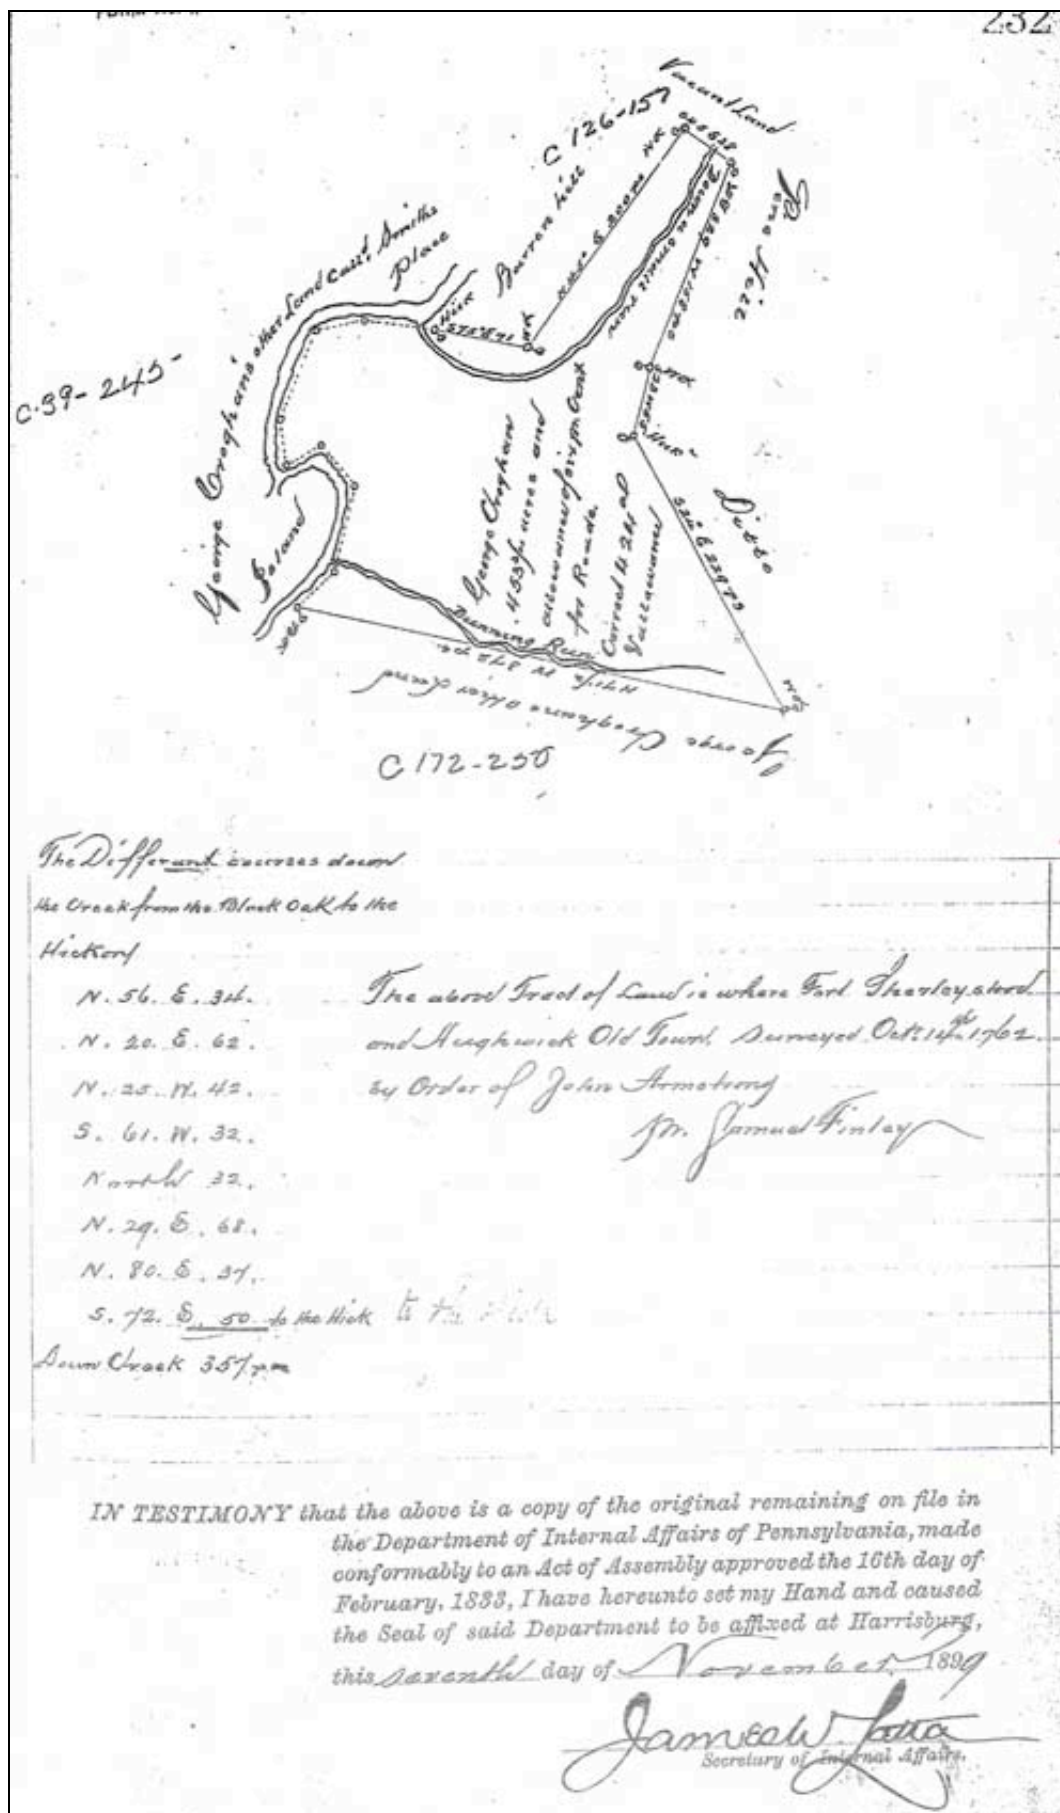 232
Vacant Land
C 126-157
Barren hill
Rena Hett
George Croghan's other Land call'd Smiths
Place
C.39-245-
Island
Hick
S75°E 71
Ditto
George Croghan
433 acres and
allowance of six pr Cent
for Roads.
Running Run
George Croghans other Land
C 172-250
The Different courses down
the Creek from the Black Oak to the
Hickory
N. 56. E. 34.
N. 20. E. 62.
N. 25. W. 42.
S. 61. W. 32.
North 32.
N. 29. E. 68.
N. 80. E. 37.
S. 72. E. 50 to the Hick
Down Creek 357
The above Tract of Land is where Fort Sherley stood
and Aughwick Old Town, Surveyed Oct. 14th 1762
By Order of John Armstrong
pr. Samuel Finley
IN TESTIMONY that the above is a copy of the original remaining on file in
the Department of Internal Affairs of Pennsylvania, made
conformably to an Act of Assembly approved the 16th day of
February, 1833, I have hereunto set my Hand and caused
the Seal of said Department to be affixed at Harrisburg,
this seventh day of November 1899
James W Latta
Secretary of Internal Affairs.